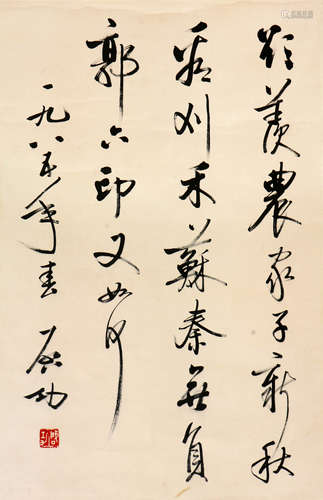 欲羨農家子新秋
看刈禾蘇秦無負
郭六印又如何
一九八五年春 啟功